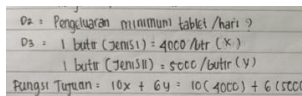 D2 = Pengeluaran minimum tablet /hari ?
D3 = 1 butir (Jenis I) = 4000 /btr (x)
1 butir (Jenis II) = 5000 /butir (y)
Fungsi Tujuan = 10x + 6y = 10 (4000) + 6 (5000